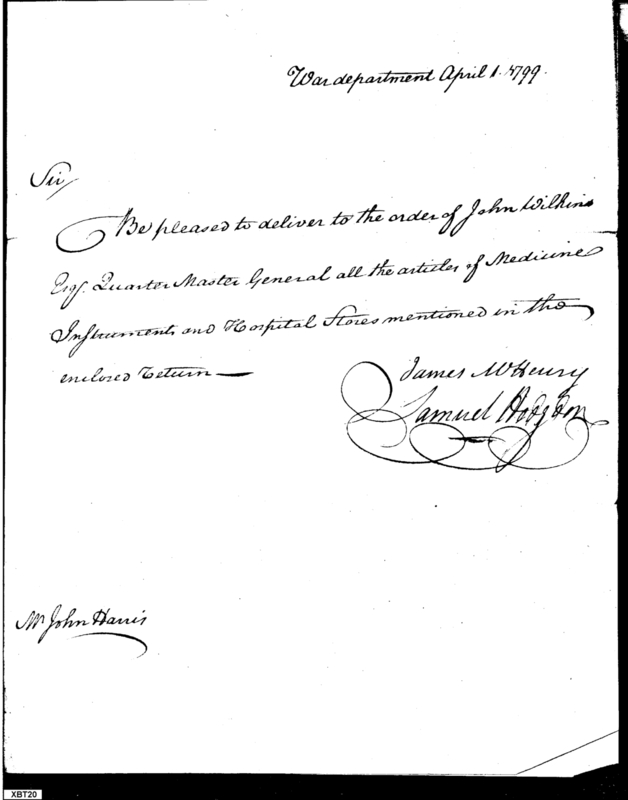 War department April 1. 1799.
Sir
Be pleased to deliver to the order of John Wilkins
Esqr. Quarter Master General all the articles of Medicine
Instruments and Hospital Stores mentioned in the
enclosed Return —
James McHenry
Samuel Hodgdon
Mr John Harris
XBT20